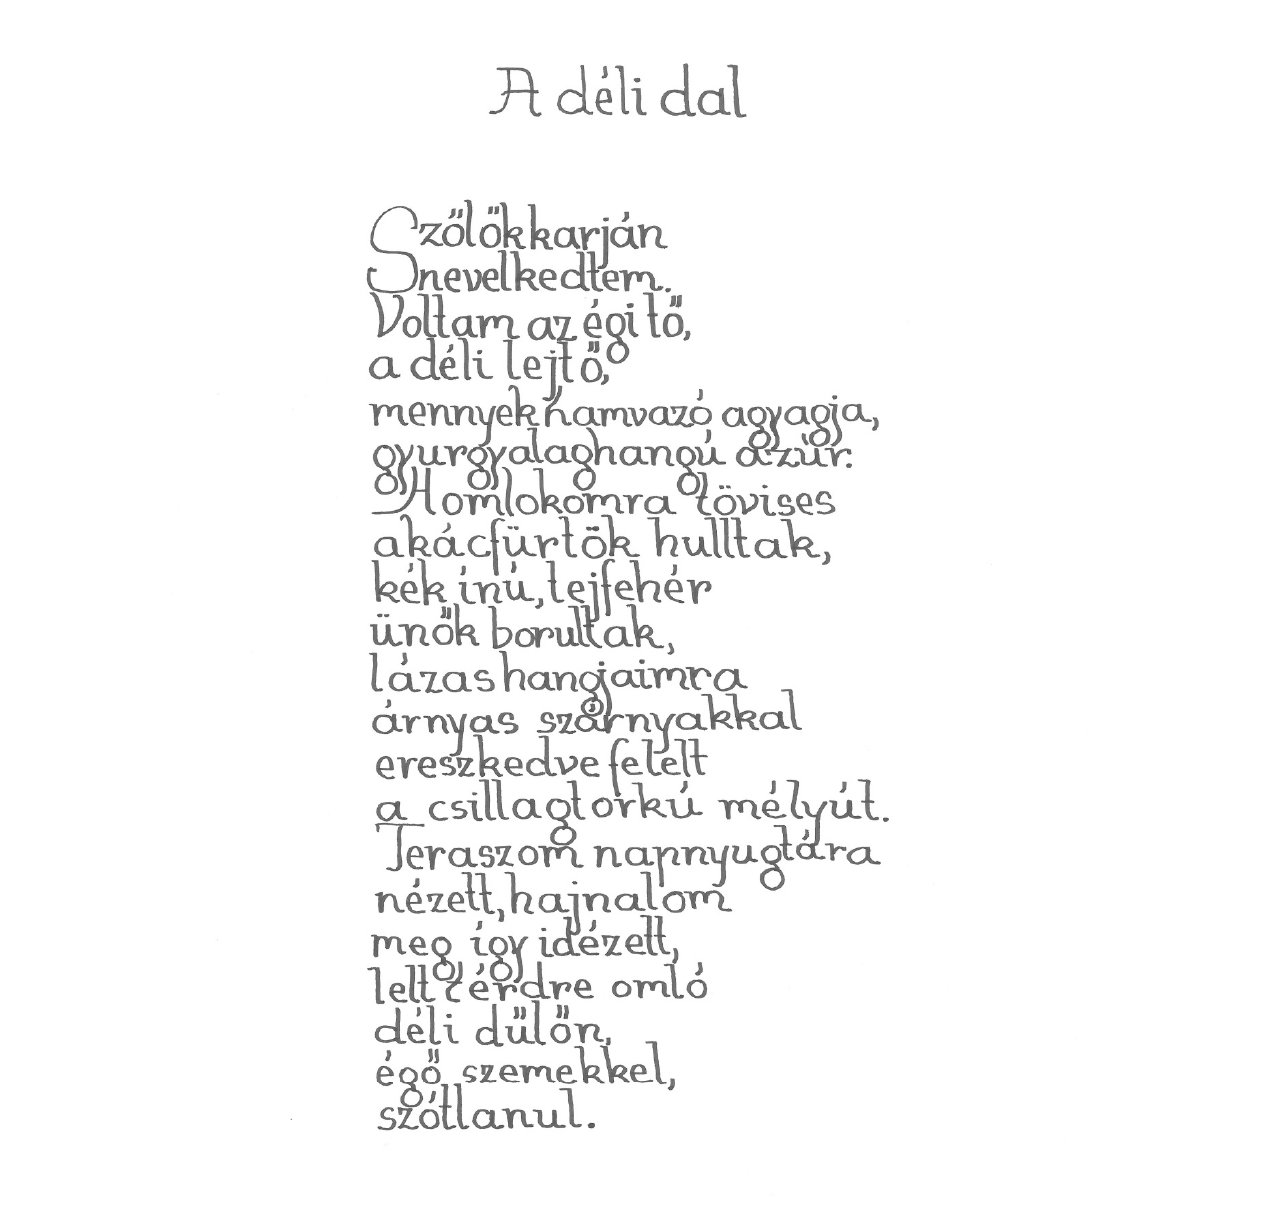 A déli dal
Szőlők karján
nevelkedtem.
Voltam az égi tő,
a déli lejtő,
mennyek hamvazó agyagja,
gyurgyalaghangú azúr.
Homlokomra tövises
akácfürtök hulltak,
kék ínú, tejfehér
ünők borultak,
lázas hangjaimra
árnyas szárnyakkal
ereszkedve felelt
a csillagtorkú mélyút.
Teraszom napnyugtára
nézett, hajnalom
meg így idézett,
lett térdre omló
déli dűlőn,
égő szemekkel,
szótlanul.